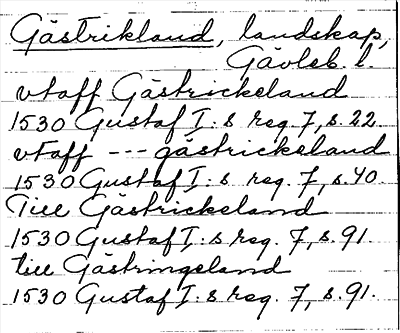 Gästrikland, landskap,
Gävleb. l.
vtaff Gästrickeland
1530 Gustaf I:s reg. 7, s. 22.
vtaff --- gästrickeland
1530 Gustaf I:s reg. 7, s. 40.
Till Gästrickeland
1530 Gustaf I:s reg. 7, s. 91.
till Gästringeland
1530 Gustaf I:s reg. 7, s. 91.